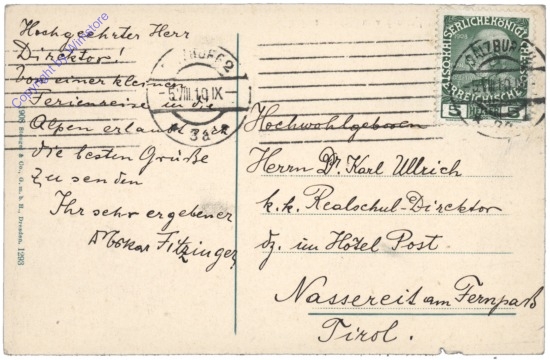 Hochgeehrter Herr
Direktor!
Von einer kleinen
Ferienreise in die
Alpen erlaubt sich
die besten Grüße
zu senden
Ihr sehr ergebener
Oskar Fitzinger
Copyright by Winstore
906 Stengel & Co., G. m. b. H., Dresden. 1293
SALZBURG 2
5.VIII.10 IX
3a
KAISERLICHE KÖNIGL
5 5
Hochwohlgeboren
Herrn Dr. Karl Ullrich
k. k. Realschul-Direktor
dz. im Hôtel Post
Nassereit am Fernpaß
Tirol.